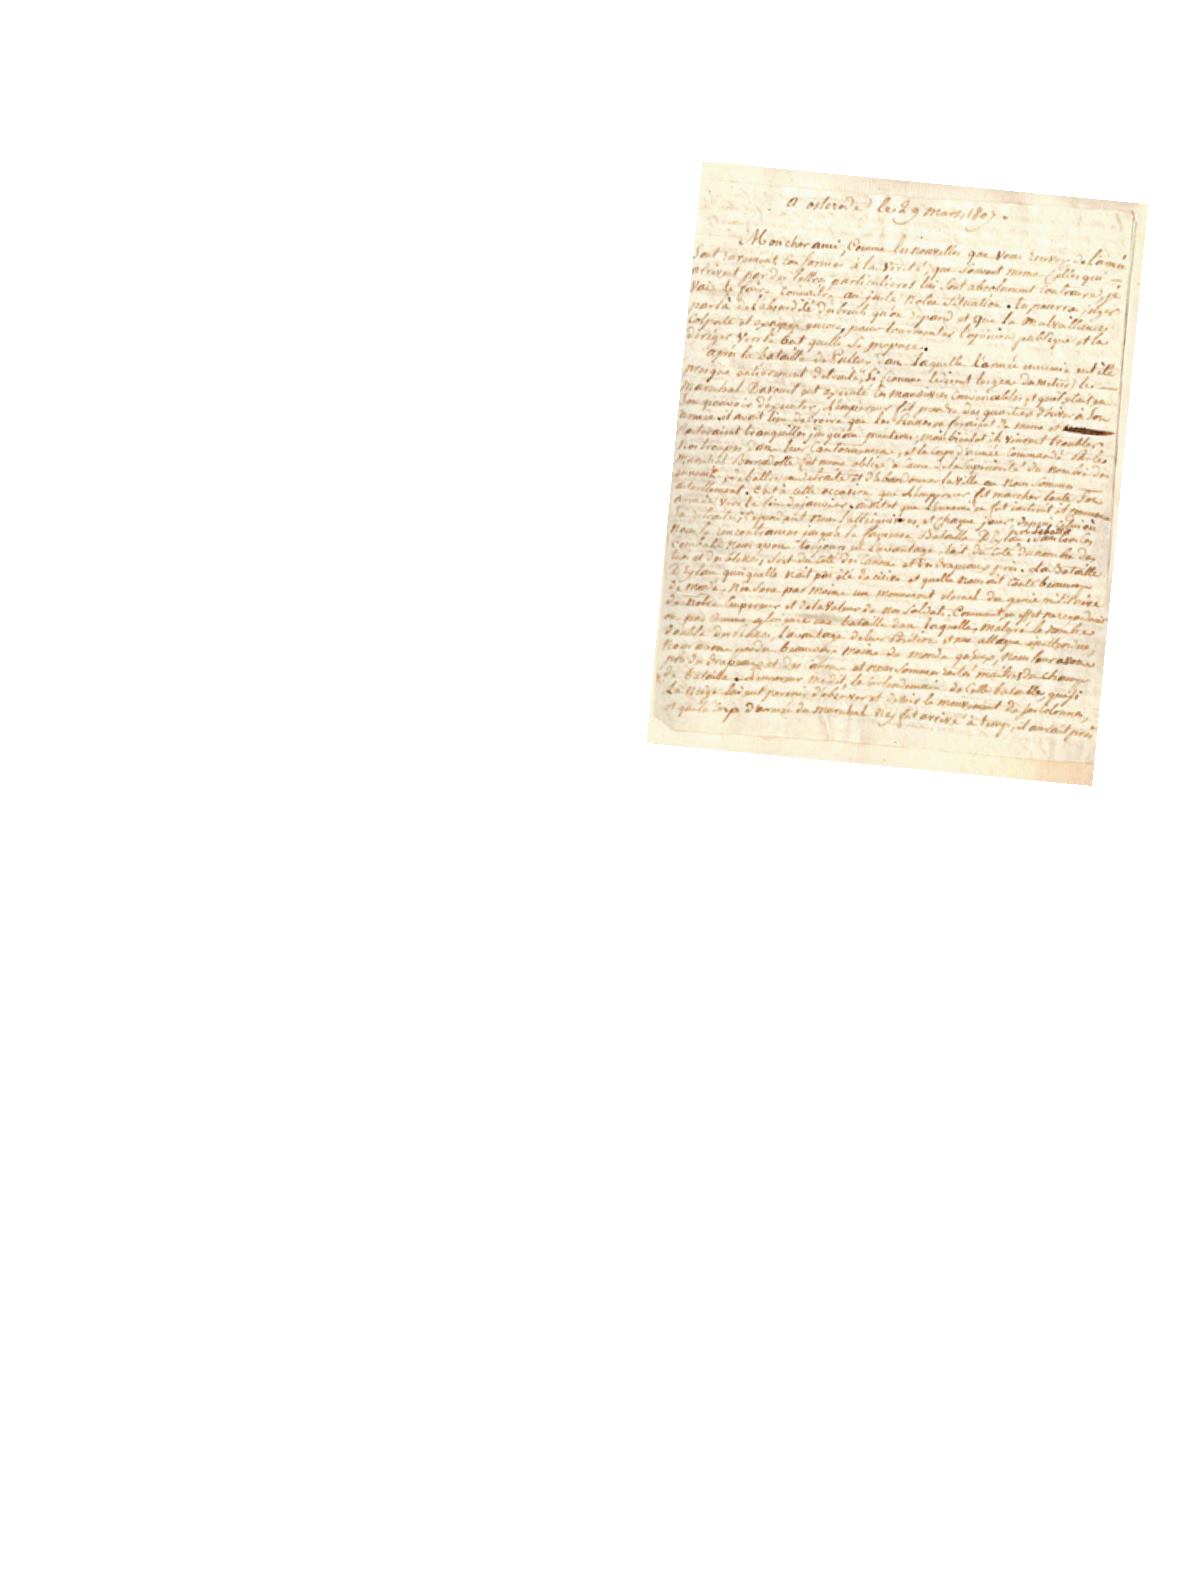 a osterode le 29 mars, 1807.
Mon cher ami, Comme les nouvelles que vous recevez de l'armée
Sont rarement conformes à la vérité, que souvent meme Celles qui
arrivent par des lettres particulieres lui sont absolument contraires, je
vais te faire connaitre au juste notre Situation. tu pourra juger
par là de l'absurdité des bruits qu'on repand et que la malveillance
Colporte et exagere encore, pour tourmenter l'opinion publique et la
diriger vers le but quelle se propose.
après la bataille de Pultus dans laquelle l'armée ennemie eut été
presque entierement detruite, Si (comme disent les gens du metier) le
Marechal Davoust eut executé les manœuvres et quil etait en
son pouvoir d'executer, L'empereur fit prendre des quartiers d'hiver à Son
armée. il avait lieu de croire que les Russes en feraient de meme et
resteraient tranquilles jusqu'au printems, mais bientot ils vinrent troubler
nos troupes dans leurs Cantonnemens, et le corps d'armée Commandé par le
Marechal Bernadotte fut meme obligé à cause de la superiorité du nombre des
ennemis, de battre en retraite et d'abandonner la ville ou nous sommes
actuellement. C'est à cette occasion que L'empereur fit marcher toute Son
armée vers la fin de janvier. aussitot que l'ennemi en fut instruit il commença
sa retraite, Cependant nous l'atteignimes, et chaque jour depuis celui où
nous le rencontrames jusqu'à la fameuse Bataille D'Eylau, dans tous les
combats nous avons toujours eu l'avantage soit du Coté du nombre des
tués et des blessés, soit du Coté des Canons et des drapeaux pris. La Bataille
D'Eylau quoiquelle nait pas été decisive et quelle nous ait couté beaucoup
de monde, n'en sera pas moins un monument eternel du genie militaire
de notre Empereur et de la valeur de nos Soldats. Comment en effet ne regarderait
on pas comme glorieuse une bataille dans laquelle, malgré le nombre
double des Russes, l'avantage de leur Position et une attaque
nous avons perdu beaucoup moins de monde qu'eux, nous leur avons
pris des drapeaux et des Canons et nous sommes restés maitres du champ
de bataille. L'empereur le surlendemain de cette bataille, que si
la neige lui eut permis d'observer et de voir le mouvement de ses colonnes,
et que le Corps d'armée du marechal Ney fut arrivé à temps, il aurait pris